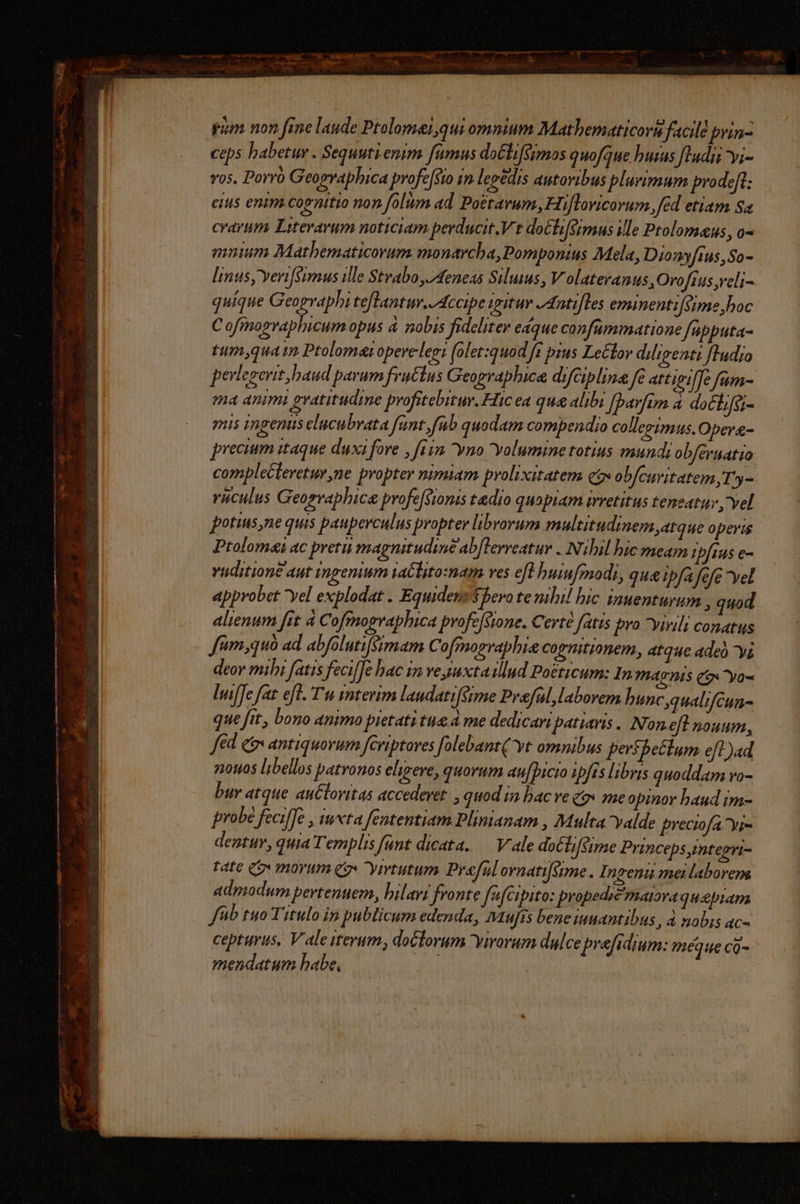 rùm non sine laude Ptolomæi,qui omnium Mathematicorũ facilè prin-
ceps habetur . Sequuti enim sumus doctissimos quosque huius studij vi-
ros. Porrò Geographica professio in legẽdis autoribus plurimum prodest:
eius enim cognitio non solùm ad Poëtarum, Historicorum, sed etiam Sa
crarum Literarum noticiam perducit.Vt doctissimus ille Ptolomæus, o-
mnium Mathematicorum monarcha, Pomponius Mela, Dionysius, So-
linus, verissimus ille Strabo, Aeneas Siluius, Volateranus, Orosius, reli-
quique Geographi testantur. Accipe igitur Antistes eminentissime, hoc
Cosmographicum opus à nobis fideliter eáque consummatione supputa-
tum,qua in Ptolomæi opere legi solet:quod si pius Lector diligenti studio
perlegerit,haud parum fructus Geographicæ disciplinæ se attigisse sum-
ma animi gratitudine profitebitur. Hic ea quæ alibi sparsim à doctissi-
mis ingenus elucubrata sunt,sub quodam compendio collegimus. Operæ-
precium itaque duxi fore , si in vno volumine totius mundi obseruatio
complecteretur,ne propter nimiam prolixitatem & obscuritatem,Ty-
rũculus Geographicæ professionis tædio quopiam irretitus teneatur, vel
potius,ne quis pauperculus propter librorum multitudinem,atque operis
Ptolomæi ac pretii magnitudinẽ absterreatur . Nihil hic meam ipsius e-
ruditionẽ aut ingenium iactito:nam res est huiusmodi, quæ ipsa sese vel
approbet vel explodat . Equidem spero te nihil hic inuenturum , quod
alienum sit à Cosmographica professione. Certè satis pro virili conatus
sum,quò ad absolutissimam Cosmographiæ cognitionem, atque adeò vi
deor mihi satis fecisse hac in re,iuxta illud Poëticum: In magnis & vo-
luisse sat est. Tu interim laudatissime Præsul,laborem hunc,qualiscun-
que sit, bono animo pietati tuæ à me dedicari patiaris. Non est nouum,
sed & antiquorum scriptores solebant( vt omnibus perspectum est)ad
nouos libellos patronos eligere, quorum auspicio ipsis libris quoddam ro-
bur atque auctoritas accederet , quod in hac re & me opinor haud im-
probè fecisse , iuxta sententiam Plinianam , Multa valde preciosa vi-
dentur, quia Templis sunt dicata. Vale doctissime Princeps,integri-
tate & morum & virtutum Præsul ornatissime. Ingenii mei laborem
admodum pertenuem, hilari fronte suscipito: propediẽ maiora quæpiam
sub tuo Titulo in publicum edenda, Musis bene iuuantibus, à nobis ac-
cepturus. Vale iterum, doctorum virorum dulce præsidium: méque cõ-
mendatum habe.